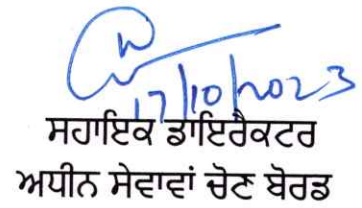 17/10/2023
ਸਹਾਇਕ ਡਾਇਰੈਕਟਰ
ਅਧੀਨ ਸੇਵਾਵਾਂ ਚੋਣ ਬੋਰਡ